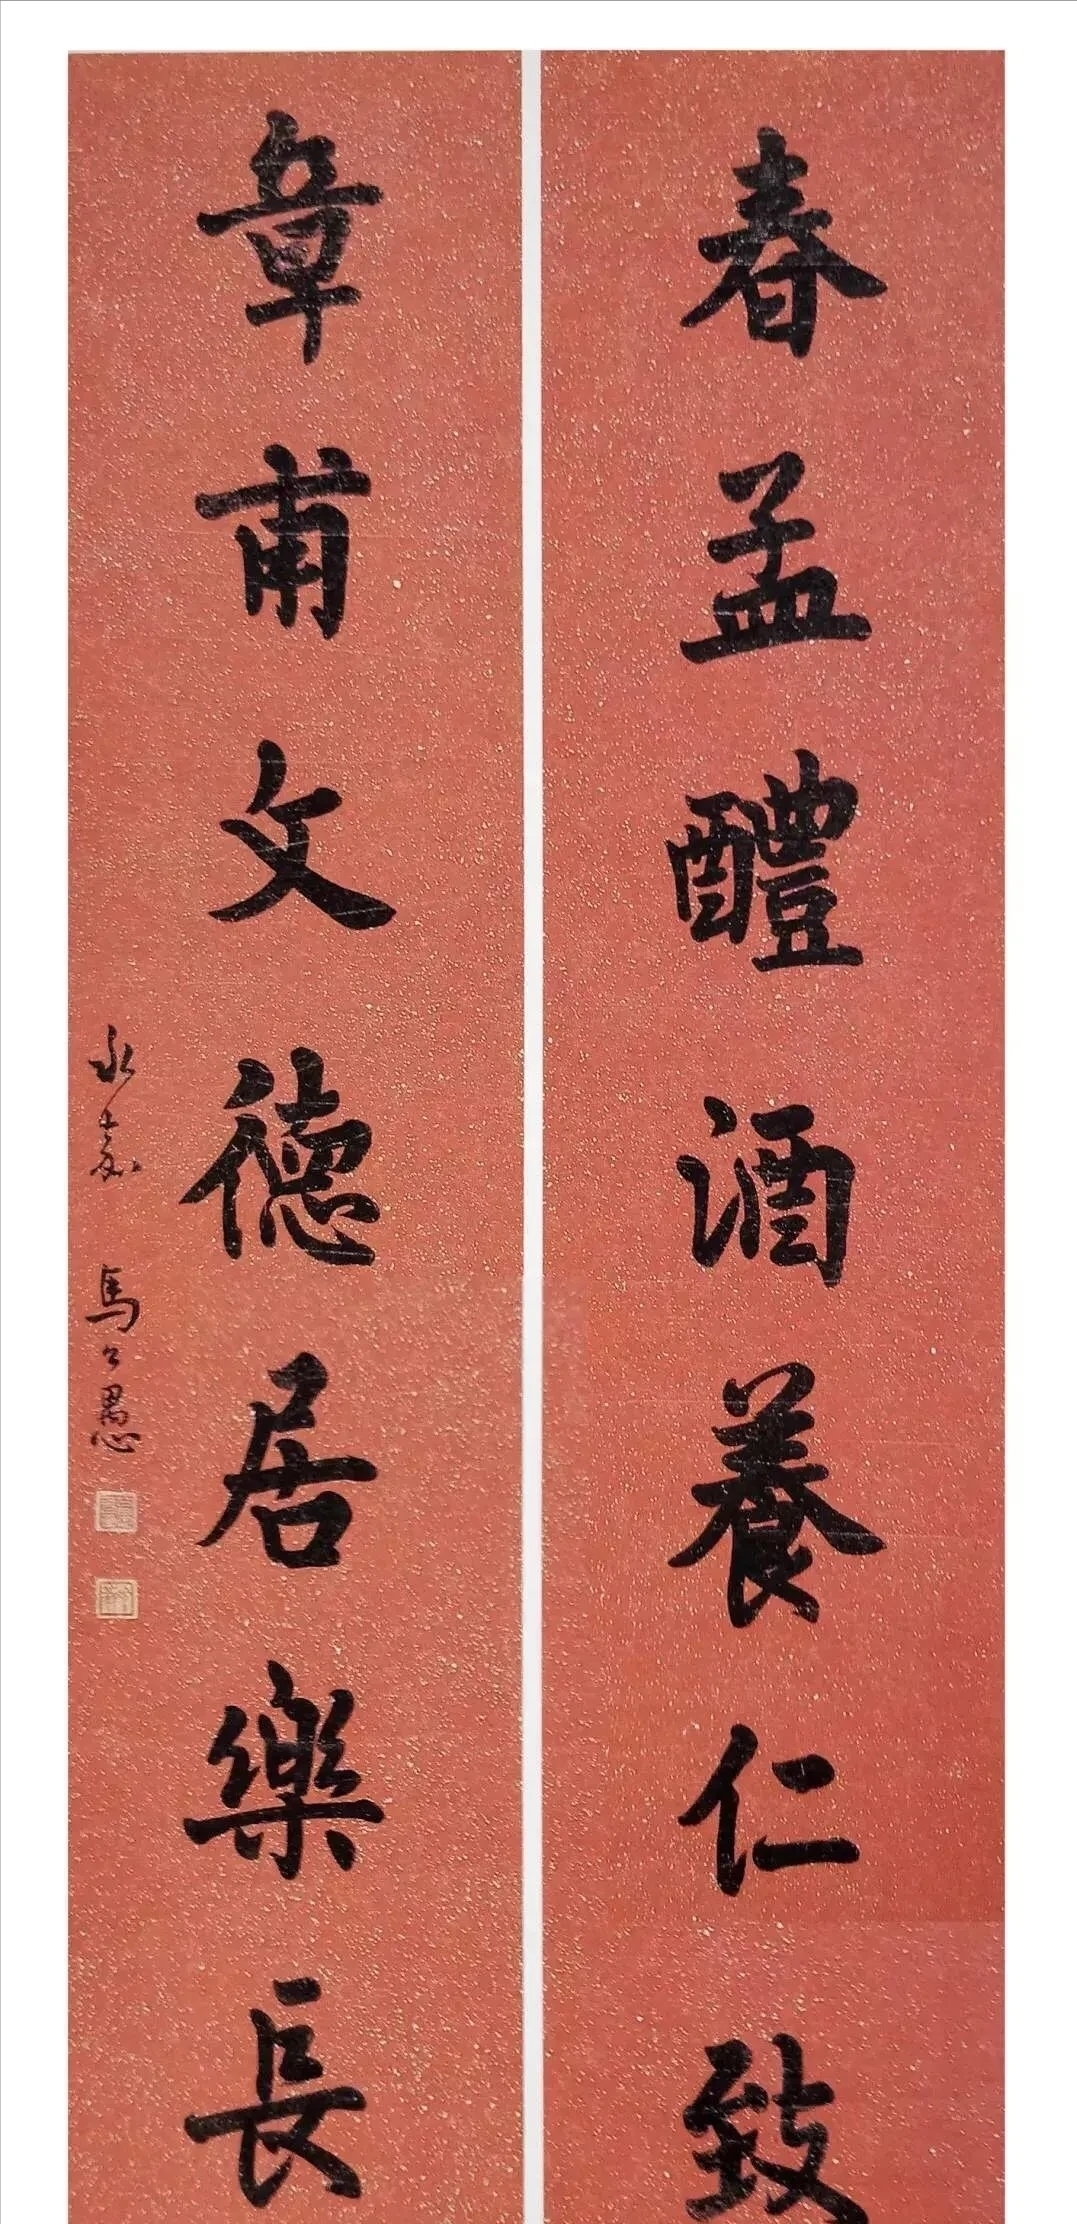 春孟醴酒養仁致
章甫文德居樂長
永嘉馬公愚